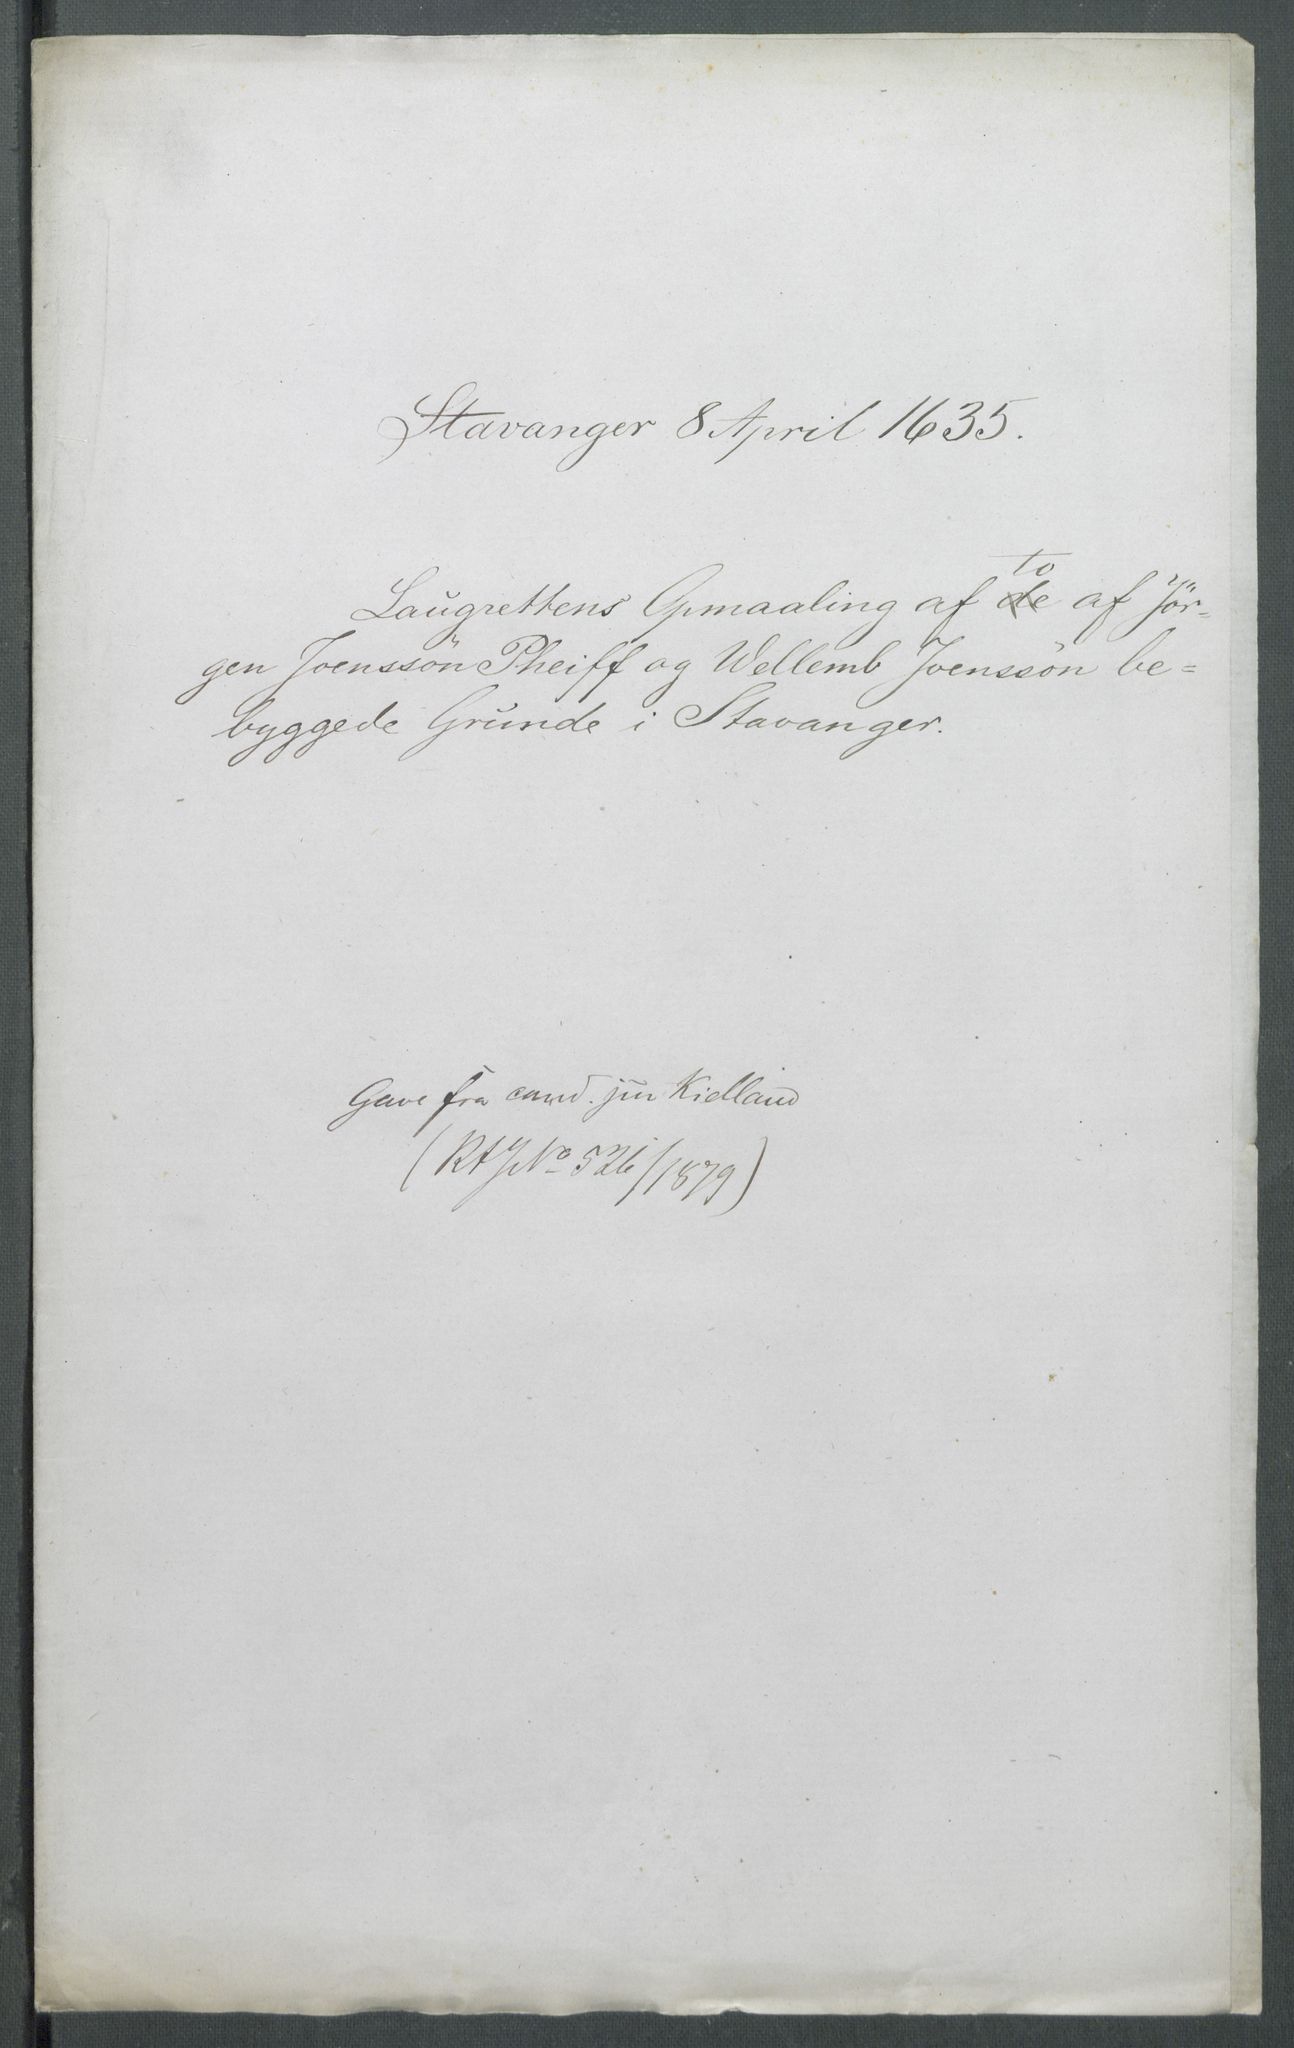 Stavanger 8 April 1635.
to
Laugrettens Opmaaling af de af Jör-
gen Joenssön Pheiff og Wellemb Joenssön be=
byggede Grunde i Stavanger.
Gave fra cand. jur Kielland
(RAJNo 526/1879)